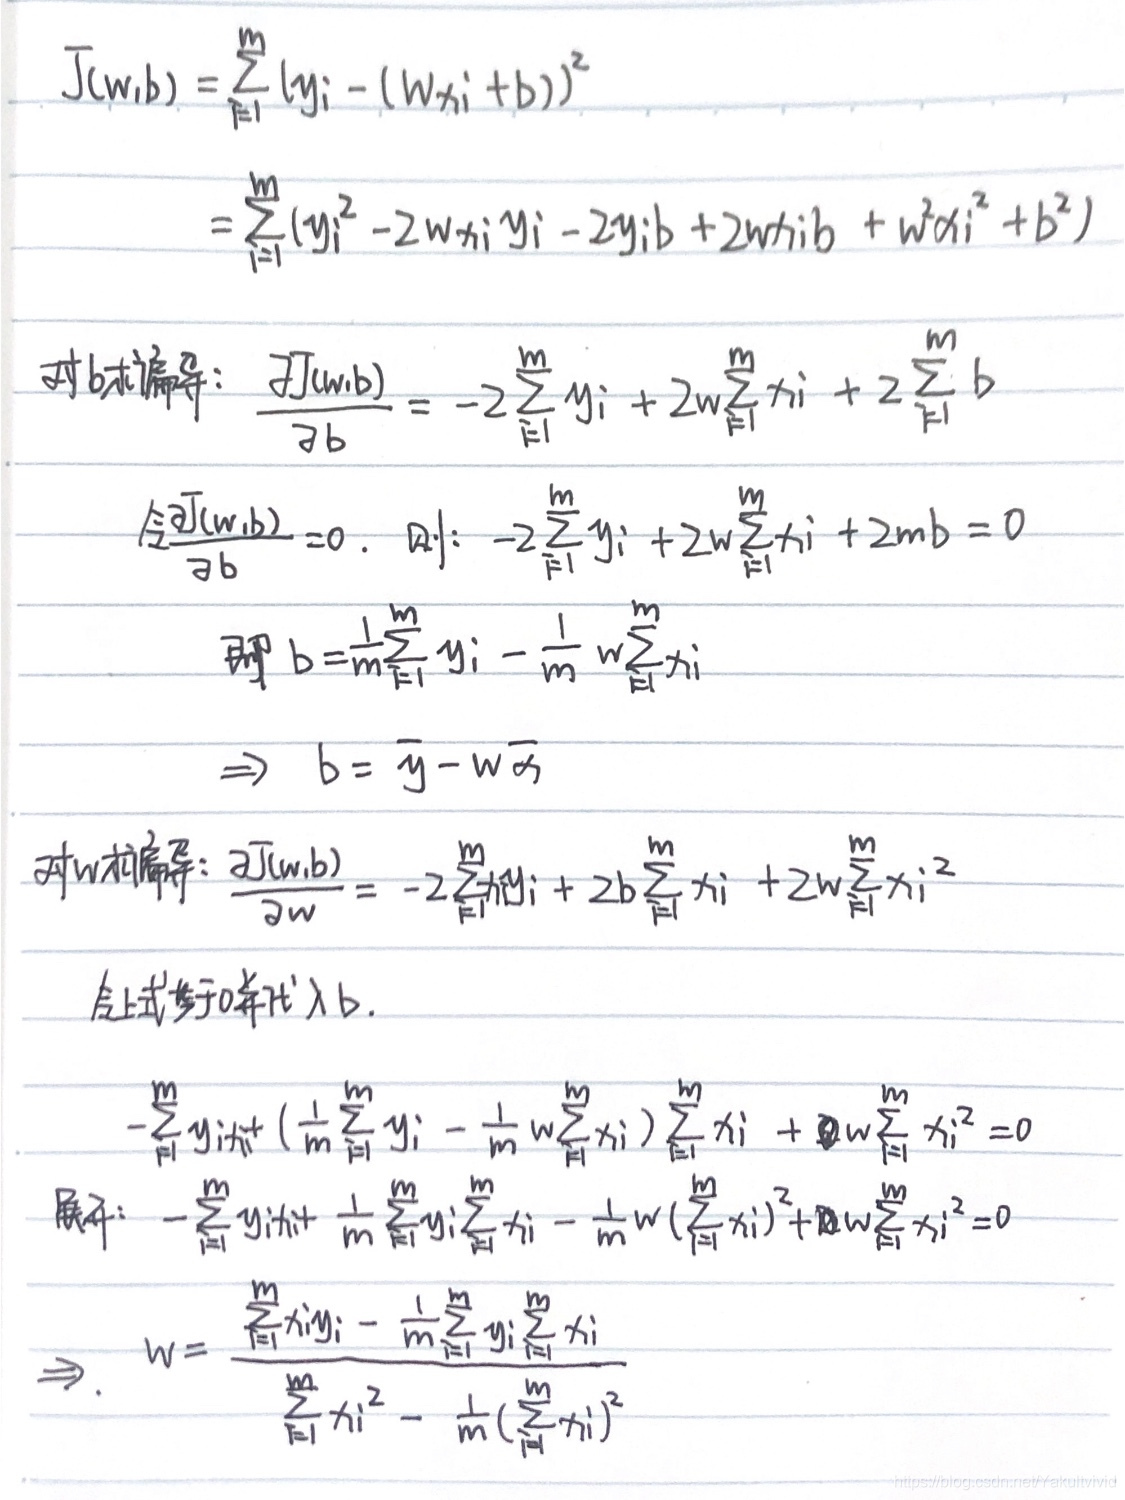 J(w,b) = \sum_{i=1}^{m} (y_i - (wx_i + b))^2
= \sum_{i=1}^{m} (y_i^2 - 2wx_iy_i - 2y_ib + 2wx_ib + w^2x_i^2 + b^2)
对b求偏导: \frac{∂J(w,b)}{∂b} = -2\sum_{i=1}^{m} y_i + 2w\sum_{i=1}^{m} x_i + 2\sum_{i=1}^{m} b
令\frac{∂J(w,b)}{∂b} = 0. 则: -2\sum_{i=1}^{m} y_i + 2w\sum_{i=1}^{m} x_i + 2mb = 0
即 b = \frac{1}{m}\sum_{i=1}^{m} y_i - \frac{1}{m} w\sum_{i=1}^{m} x_i
⇒ b = \bar{y} - w\bar{x}
对w求偏导: \frac{∂J(w,b)}{∂w} = -2\sum_{i=1}^{m} x_iy_i + 2b\sum_{i=1}^{m} x_i + 2w\sum_{i=1}^{m} x_i^2
令上式等于0并代入b.
-\sum_{i=1}^{m} y_ix_i + (\frac{1}{m}\sum_{i=1}^{m} y_i - \frac{1}{m} w\sum_{i=1}^{m} x_i)\sum_{i=1}^{m} x_i + w\sum_{i=1}^{m} x_i^2 = 0
展开: -\sum_{i=1}^{m} y_ix_i + \frac{1}{m}\sum_{i=1}^{m} y_i\sum_{i=1}^{m} x_i - \frac{1}{m} w(\sum_{i=1}^{m} x_i)^2 + w\sum_{i=1}^{m} x_i^2 = 0
⇒. w = \frac{\sum_{i=1}^{m} x_iy_i - \frac{1}{m}\sum_{i=1}^{m} y_i\sum_{i=1}^{m} x_i}{\sum_{i=1}^{m} x_i^2 - \frac{1}{m}(\sum_{i=1}^{m} x_i)^2}
https://blog.csdn.net/Yakultvivid